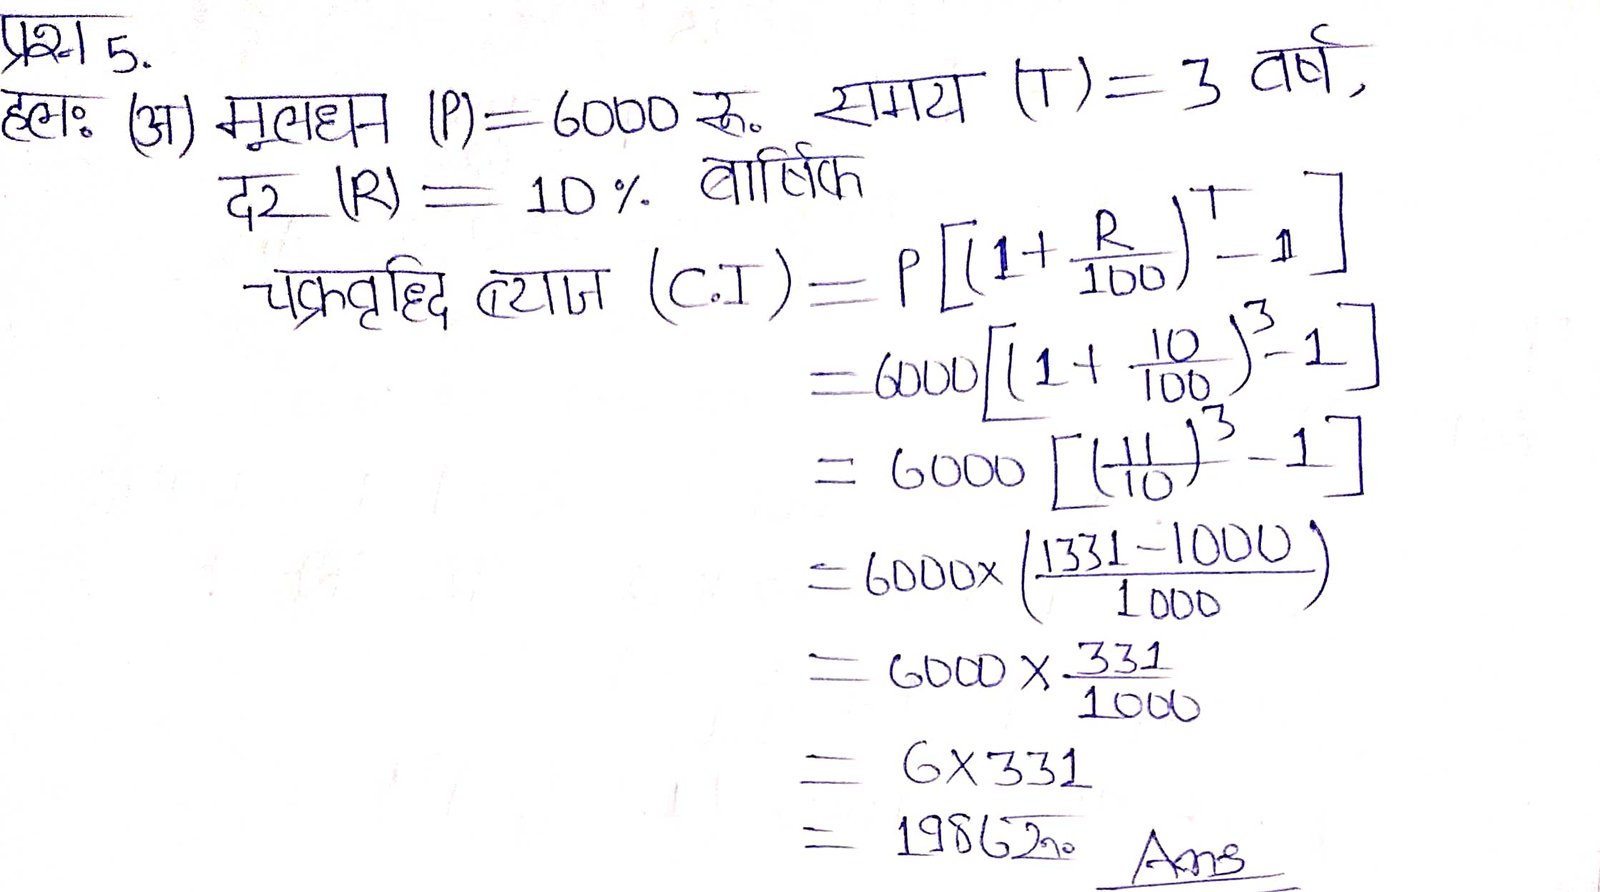 प्रश्न 5.
हलः (अ) मूलधन (P) = 6000 रू. समय (T) = 3 वर्ष,
दर (R) = 10% वार्षिक
चक्रवृद्धि ब्याज (C.I) = P[(1 + R/100)^T - 1]
= 6000[(1 + 10/100)^3 - 1]
= 6000 [(11/10)^3 - 1]
= 6000 × (1331 - 1000 / 1000)
= 6000 × 331/1000
= 6 × 331
= 1986 रू. Ans